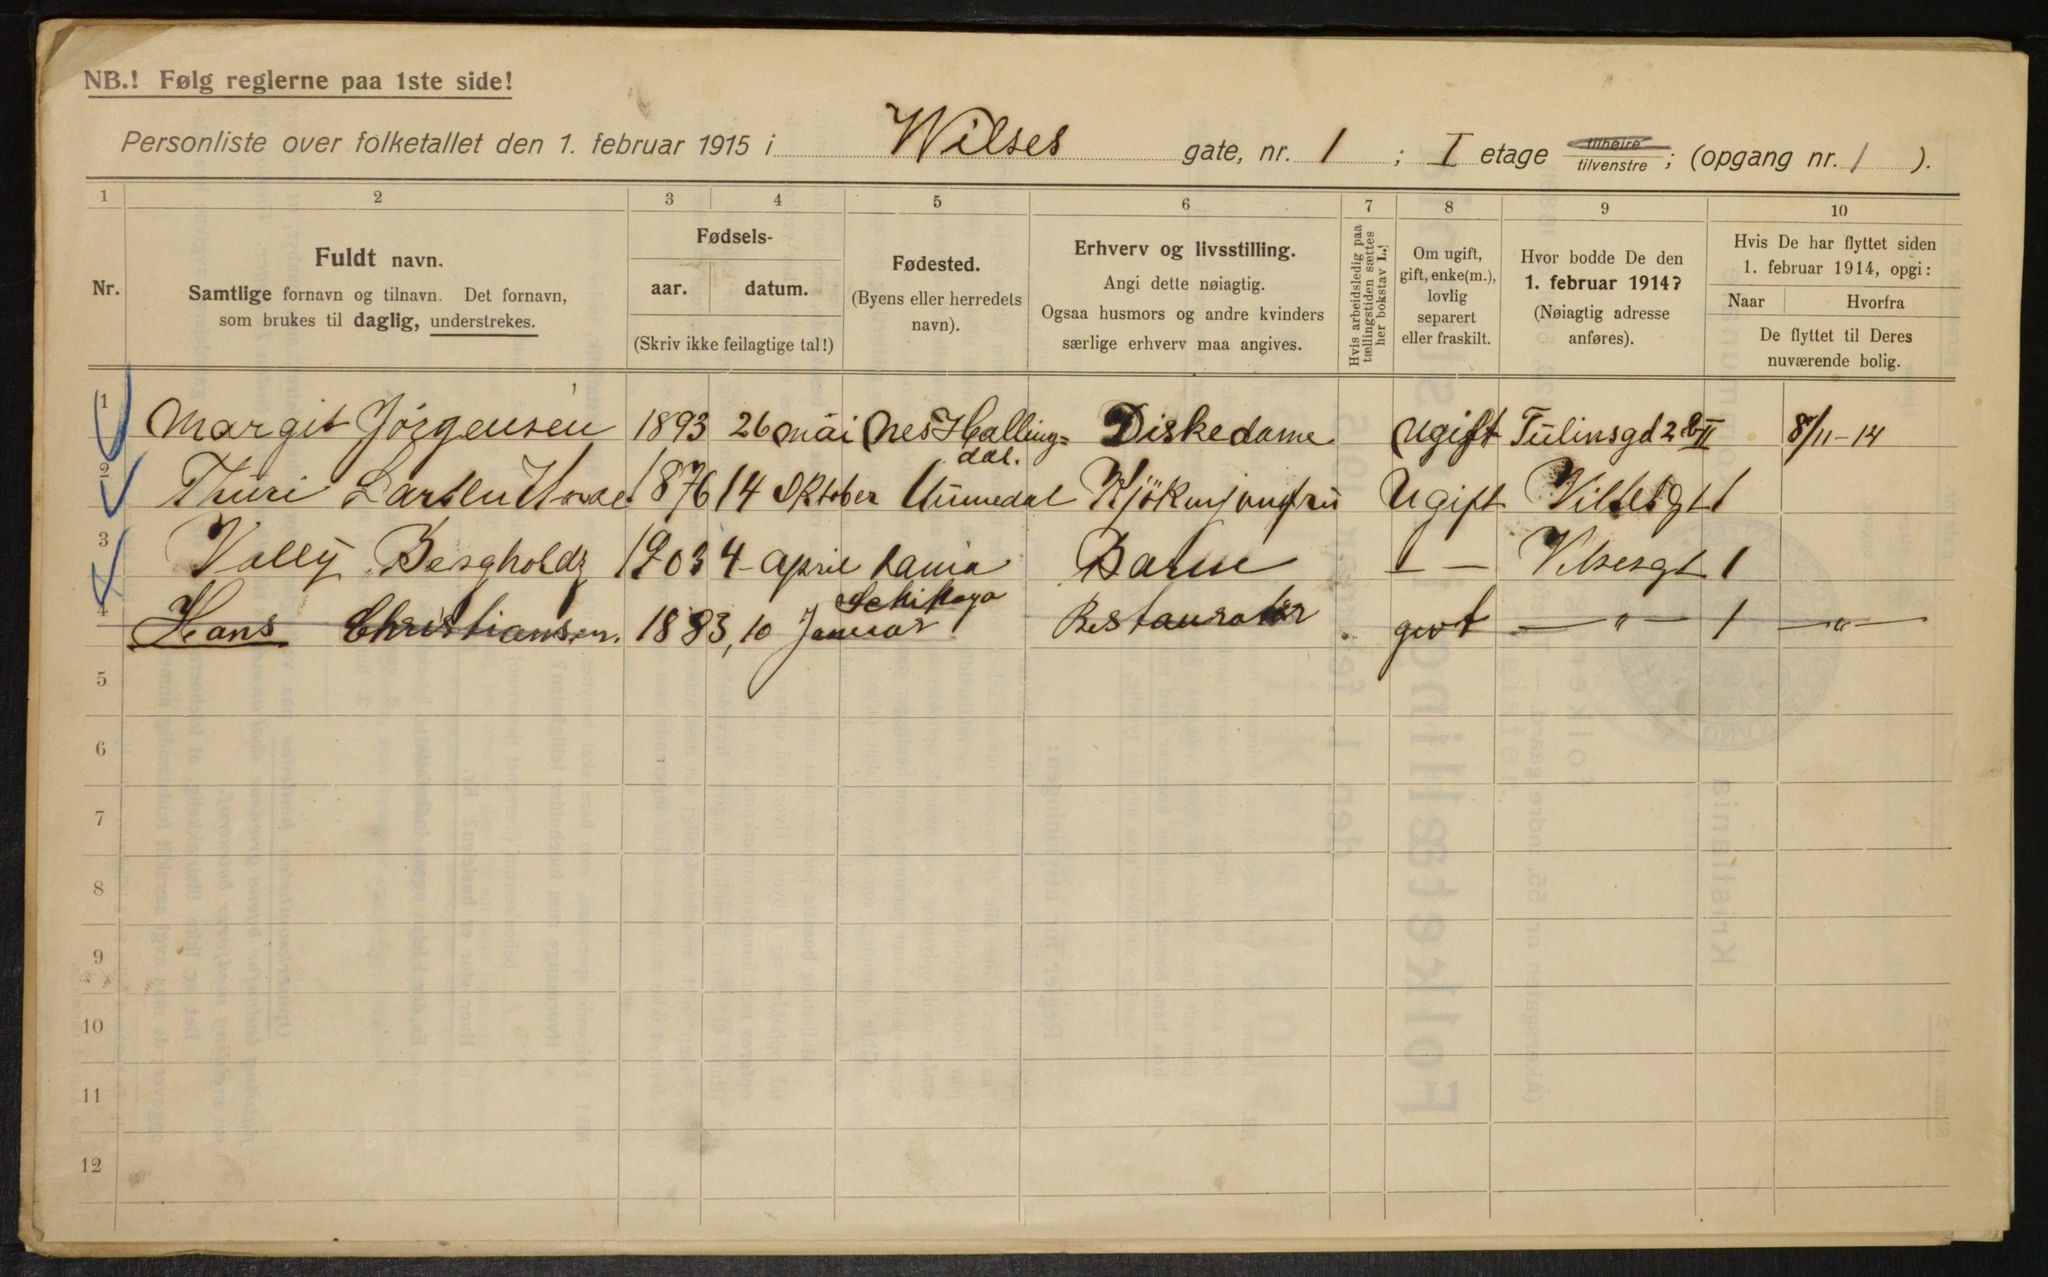 NB.! Følg reglerne paa 1ste side!
Personliste over folketallet den 1. februar 1915 i Wilses gate, nr. 1 ; I etage tilhøire tilvenstre; (opgang nr. 1 ).
1 2 3 4 5 6 7 8 9 10
Nr.
Fuldt navn.
Samtlige fornavn og tilnavn. Det fornavn,
som brukes til daglig, understrekes.
Fødsels-
aar. datum.
(Skriv ikke feilagtige tal!)
Fødested.
(Byens eller herredets
navn).
Erhverv og livsstilling.
Angi dette nøiagtig.
Ogsaa husmors og andre kvinders
særlige erhverv maa angives.
Hvis arbeidsledig paa
tællingstiden sættes
her bokstav L.!
Om ugift,
gift, enke(m.),
lovlig
separert
eller fraskilt.
Hvor bodde De den
1. februar 1914?
(Nøiagtig adresse
anføres).
Hvis De har flyttet siden
1. februar 1914, opgi:
Naar Hvorfra
De flyttet til Deres
nuværende bolig.
1 Margit Jörgensen 1893 26 mai Nes Halling=dal. Diskedame Ugift Tulinsgd 2 b II 8/11-14
2 Thuri Larsen 1876 14 Oktober Kjökenjomfru Ugift Vilsesgt 1
3 Vally Bergholdz 1903 4 april Barn — — Vilsesgt 1
4 Hans Christiansen. 1883, 10 Januar Restauratör givt — " — 1 — " —
5
6
7
8
9
10
11
12